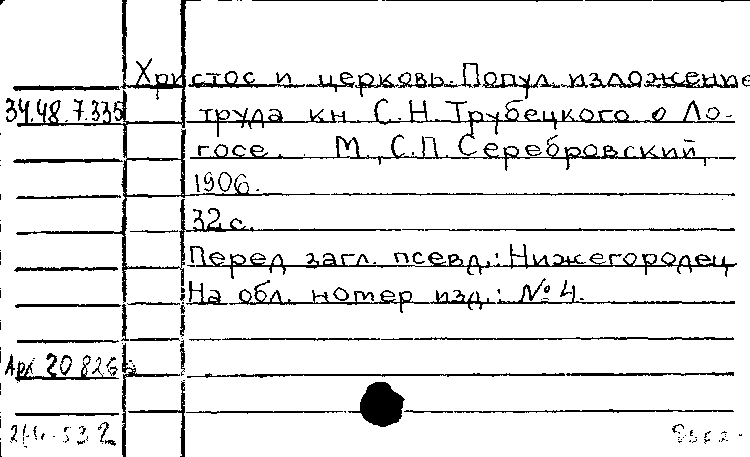 Христос и церковь. Попул. изложение
34.48.7.335 труда кн. С.Н. Трубецкого о Ло-
госе. М., С.П. Серебровский,
1906.
32 с.
Перед загл. псевд.: Нижегородец
На обл. номер изд.: № 4.
Арх 20 826